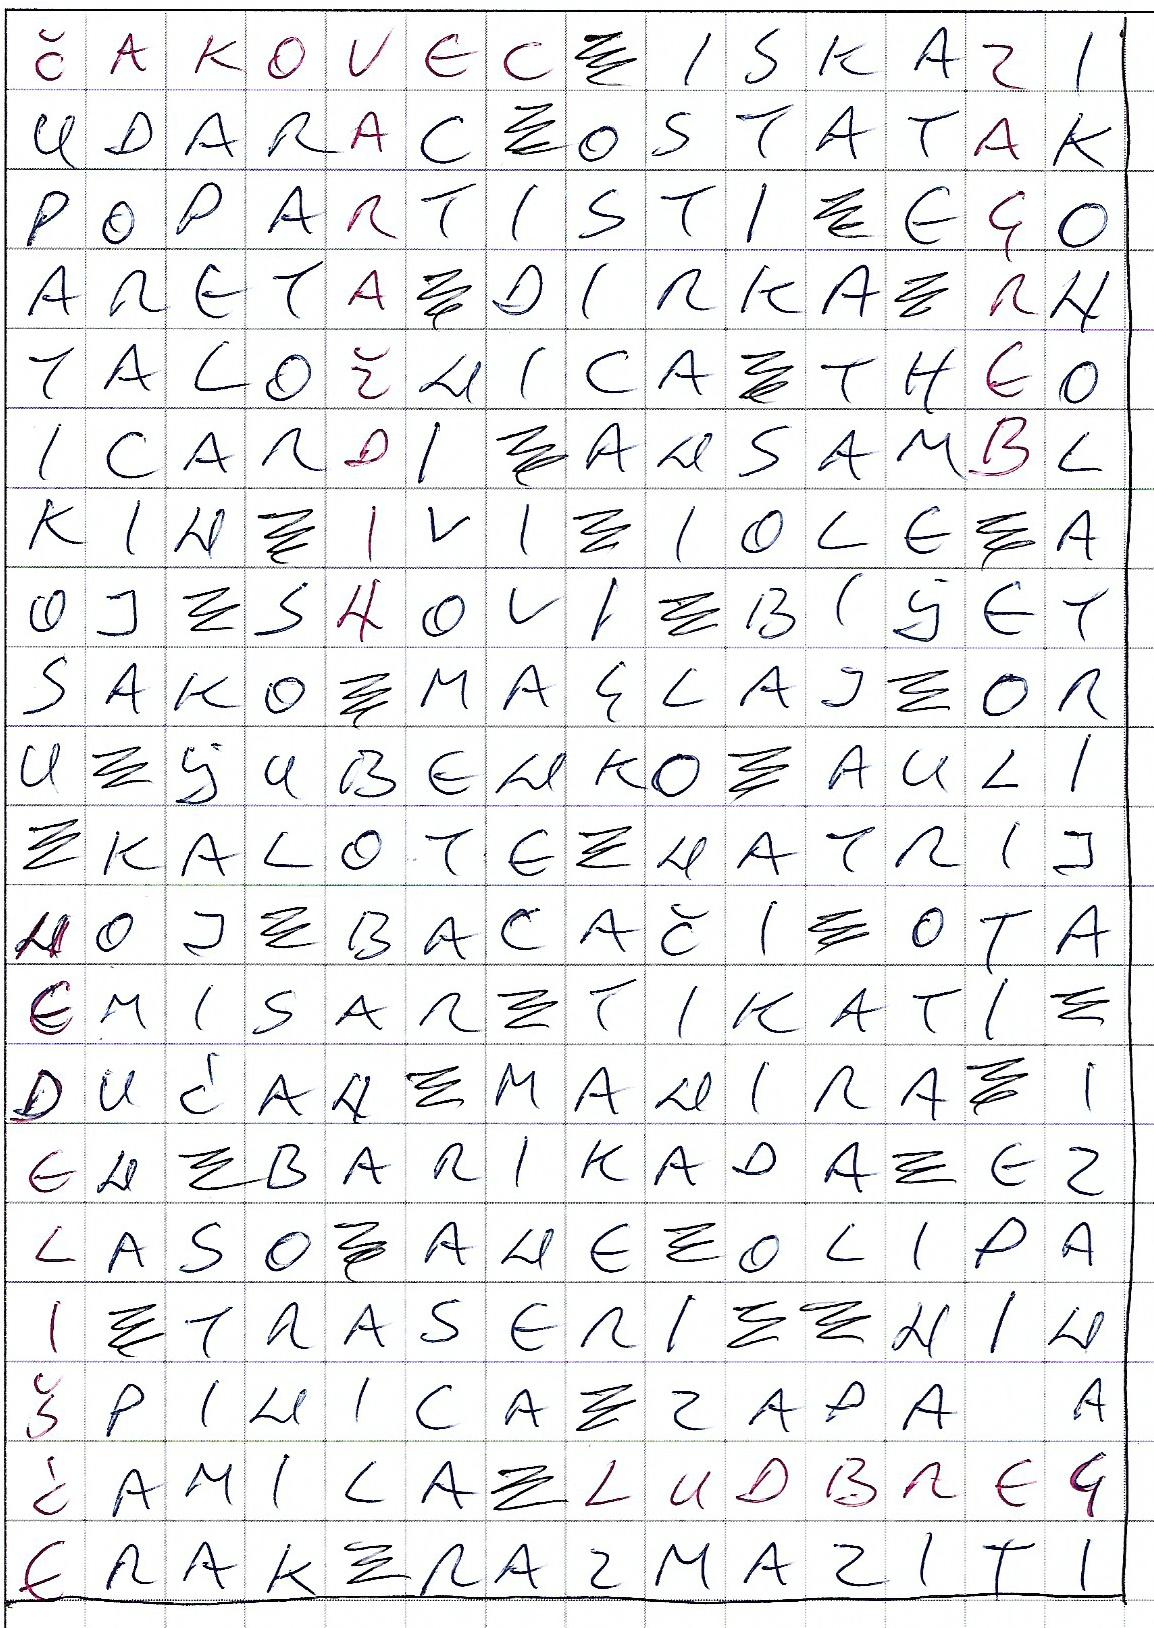 ČAKOVEC ISKAZI
UDARAC OSTATAK
POPARTISTI EGO
ARETA DIRKA RN
TALOŽNICA THEO
ICARDI ANSAMBL
KIN IVI IOLE A
OJ SNOVI BILJET
SAKO MAGLAJ OR
U LJUBENKO AULI
KALOTE NATRIJ
NOJ BACAČI OTA
EMISAR TIKATI
DUĆAN MANIRA I
EN BARIKADA EZ
LASO ANE OLIPA
I TRASERI NIN
ŠPINICA ZAPA A
ĆAMILA LUDBREG
ERAK RAZMAZITI